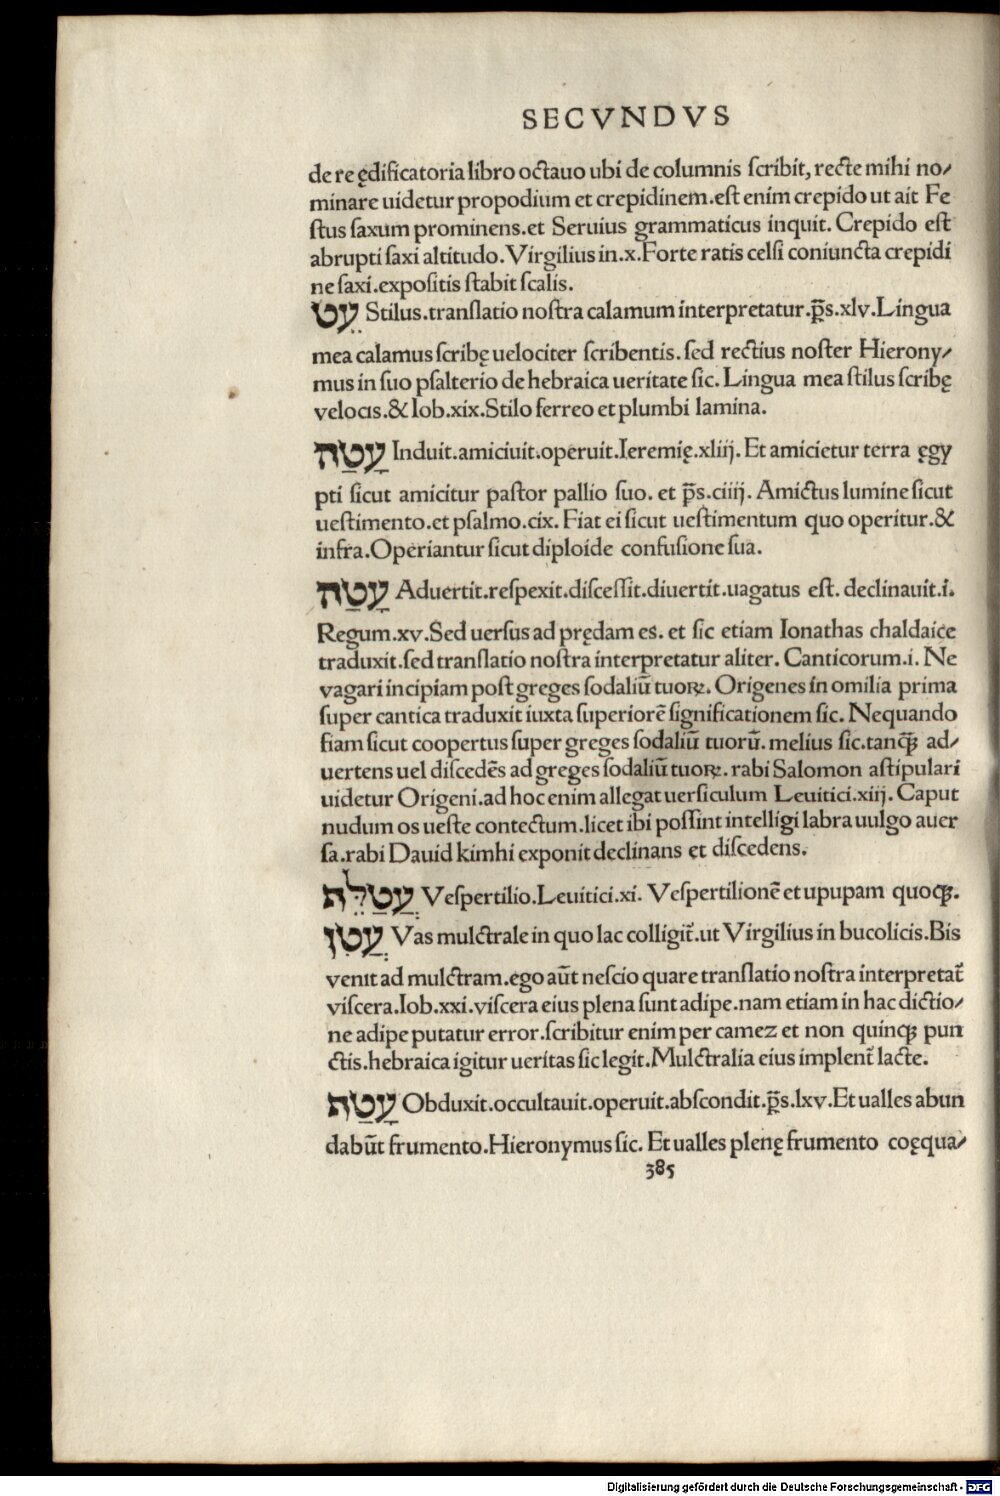 SECVNDVS
de re ędificatoria libro octauo ubi de columnis ſcribit, recte mihi no/
minare uidetur propodium et crepidinem.eſt enim crepido ut ait Fe
ſtus ſaxum prominens.et Seruius grammaticus inquit. Crepido eſt
abrupti ſaxi altitudo.Virgilius in.x.Forte ratis celſi coniuncta crepidi
ne ſaxi.expoſitis ſtabit ſcalis.
עֵט Stilus.tranſlatio noſtra calamum interpretatur.p̄s.xlv.Lingua
mea calamus ſcribę uelociter ſcribentis. ſed rectius noſter Hierony/
mus in ſuo pſalterio de hebraica ueritate ſic. Lingua mea ſtilus ſcribę
velocis.& Iob.xix.Stilo ferreo et plumbi lamina.
עָטַה Induit.amiciuit.operuit.Ieremię.xliij. Et amicietur terra ęgy
pti ſicut amicitur paſtor pallio ſuo. et p̄s.ciiij. Amictus lumine ſicut
ueſtimento.et pſalmo.cix. Fiat ei ſicut ueſtimentum quo operitur.&
infra.Operiantur ſicut diploide confuſione ſua.
עָטַה Aduertit.reſpexit.diſceſſit.diuertit.uagatus eſt. declinauit.i.
Regum.xv.Sed uerſus ad prędam es. et ſic etiam Ionathas chaldaice
traduxit.ſed tranſlatio noſtra interpretatur aliter. Canticorum.i. Ne
vagari incipiam poſt greges ſodaliū tuoꝝ. Origenes in omilia prima
ſuper cantica traduxit iuxta ſuperiorē ſignificationem ſic. Nequando
fiam ſicut coopertus ſuper greges ſodaliū tuorū. melius ſic.tanq̄ȝ ad/
uertens uel diſcedēs ad greges ſodaliū tuoꝝ. rabi Salomon aſtipulari
uidetur Origeni.ad hoc enim allegat uerſiculum Leuitici.xiij. Caput
nudum os ueſte contectum.licet ibi poſſint intelligi labra uulgo auer
ſa.rabi Dauid kimhi exponit declinans et diſcedens.
עֲטַלֵּת Veſpertilio.Leuitici.xi. Veſpertilionē et upupam quoqȝ.
עֲטִן Vas mulctrale in quo lac colligit̄.ut Virgilius in bucolicis.Bis
venit ad mulctram.ego aūt neſcio quare tranſlatio noſtra interpretat̄
viſcera.Iob.xxi.viſcera eius plena ſunt adipe.nam etiam in hac dictio/
ne adipe putatur error.ſcribitur enim per camez et non quinqȝ pun
ctis.hebraica igitur ueritas ſic legit.Mulctralia eius implent̄ lacte.
עָטַה Obduxit.occultauit.operuit.abſcondit.p̄s.lxv.Et ualles abun
dabūt frumento.Hieronymus ſic. Et ualles plenę frumento coęqua/
385
Digitalisierung gefördert durch die Deutsche Forschungsgemeinschaft - DFG